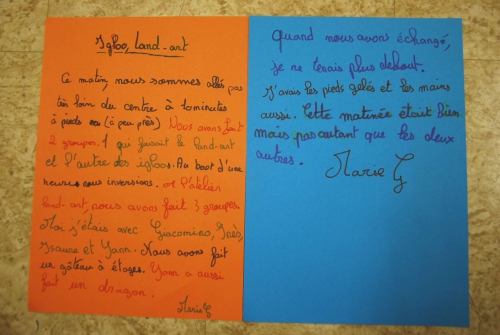 Igloo, land-art
Ce matin, nous sommes allés pas
très loin du centre à 10 minutes
à pieds (à peu près) Nous avons fait
2 groupes. 1 qui faisait le land-art
et l'autre des igloos. Au boot d'une
heure nous inversions. A l'atelier
land-art, nous avons fait 3 groupes.
Moi j'étais avec Giacomino, Inès,
Isaure et Yann. Nous avons fait
un gâteau à étages. Yann a aussi
fait un dragon.
Marie G
Quand nous avons échangé,
je ne tenais plus debout.
J'avais les pieds gelés et les mains
aussi. Cette matinée était bien
mais pas autant que les deux
autres.
Marie G